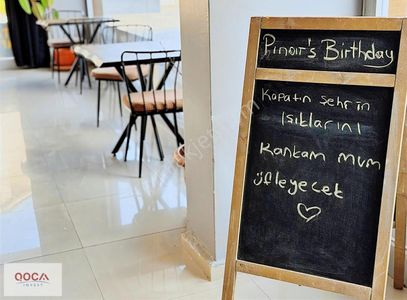 Pınar's Birthday
Kapatın şehrin
Işıklarını
Kankam mum
üfleyecek
QOCA
INVEST